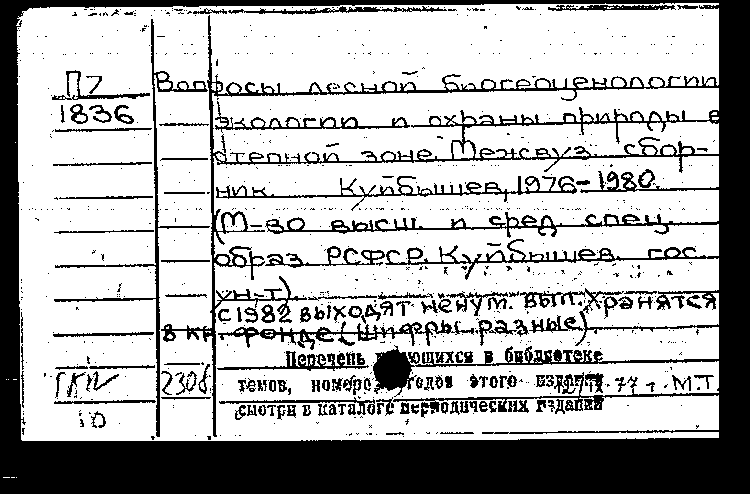 П7 Вопросы лесной биогеоценологии
1836 экологии и охраны природы в
степной зоне. Межвуз. сбор-
ник. Куйбышев, 1976-1980.
(М-во высш. и сред. спец.
образ. РСФСР. Куйбышев. гос.
ун-т).
с 1982 выходят ненум. вып. Хранятся
в кн. фонде (шифры разные)
Перечень имеющихся в библиотеке
томов, номеров, годов этого издания
смотри в каталоге периодических изданий
2306
77 г. М.Т.
10